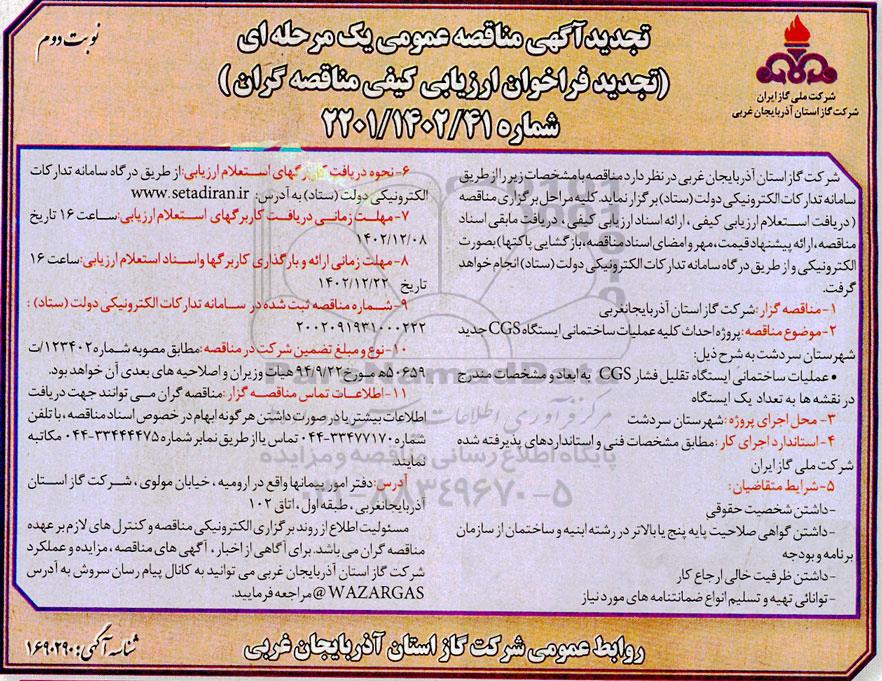 نوبت دوم
تجدید آگهی مناقصه عمومی یک مرحله ای
(تجدید فراخوان ارزیابی کیفی مناقصه گران)
شماره ۲۲۰۱/۱۴۰۲/۴۱
شرکت ملی گاز ایران
شرکت گاز استان آذربایجان غربی
شرکت گاز استان آذربایجان غربی در نظر دارد مناقصه با مشخصات زیر را از طریق
سامانه تدارکات الکترونیکی دولت (ستاد) برگزار نماید. کلیه مراحل برگزاری مناقصه
(دریافت استعلام ارزیابی کیفی، ارائه اسناد ارزیابی کیفی، دریافت مابقی اسناد
مناقصه، ارائه پیشنهاد قیمت، مهر و امضای اسناد مناقصه، بازگشایی پاکتها) بصورت
الکترونیکی و از طریق درگاه سامانه تدارکات الکترونیکی دولت (ستاد) انجام خواهد
گرفت.
۱- مناقصه گزار: شرکت گاز استان آذربایجانغربی
۲- موضوع مناقصه: پروژه احداث کلیه عملیات ساختمانی ایستگاه CGS جدید
شهرستان سردشت به شرح ذیل:
• عملیات ساختمانی ایستگاه تقلیل فشار CGS به ابعاد و مشخصات مندرج
در نقشه ها به تعداد یک ایستگاه
۳- محل اجرای پروژه: شهرستان سردشت
۴- استاندارد اجرای کار: مطابق مشخصات فنی و استانداردهای پذیرفته شده
شرکت ملی گاز ایران
۵- شرایط متقاضیان:
-داشتن شخصیت حقوقی
-داشتن گواهی صلاحیت پایه پنج یا بالاتر در رشته ابنیه و ساختمان از سازمان
برنامه و بودجه
-داشتن ظرفیت خالی ارجاع کار
-توانائی تهیه و تسلیم انواع ضمانتنامه های مورد نیاز
۶- نحوه دریافت کاربرگهای استعلام ارزیابی: از طریق درگاه سامانه تدارکات
الکترونیکی دولت (ستاد) به آدرس: www.setadiran.ir
۷- مهلت زمانی دریافت کاربرگهای استعلام ارزیابی: ساعت ۱۶ تاریخ
۱۴۰۲/۱۲/۰۸
۸- مهلت زمانی ارائه و بارگذاری کاربرگها و اسناد استعلام ارزیابی: ساعت ۱۶
تاریخ ۱۴۰۲/۱۲/۲۲
۹- شماره مناقصه ثبت شده در سامانه تدارکات الکترونیکی دولت (ستاد):
۲۰۰۲۰۹۱۹۳۱۰۰۰۲۲۲
۱۰- نوع و مبلغ تضمین شرکت در مناقصه: مطابق مصوبه شماره ۱۲۳۴۰۲/ت
۵۰۶۵۹ه مورخ ۹۴/۹/۲۲ هیات وزیران و اصلاحیه های بعدی آن خواهد بود.
۱۱- اطلاعات تماس مناقصه گزار: مناقصه گران می توانند جهت دریافت
اطلاعات بیشتر یا در صورت داشتن هرگونه ابهام در خصوص اسناد مناقصه، با تلفن
شماره ۳۳۴۷۷۱۷۰-۰۴۴ تماس یا از طریق نمابر شماره ۳۳۴۴۴۴۷۵-۰۴۴ مکاتبه
نمایند.
آدرس: دفتر امور پیمانها واقع در ارومیه، خیابان مولوی، شرکت گاز استان
آذربایجانغربی، طبقه اول، اتاق ۱۰۲
مسئولیت اطلاع از روند برگزاری الکترونیکی مناقصه و کنترل های لازم بر عهده
مناقصه گران می باشد. برای آگاهی از اخبار، آگهی های مناقصه، مزایده و عملکرد
شرکت گاز استان آذربایجان غربی می توانید به کانال پیام رسان سروش به آدرس
@WAZARGAS مراجعه فرمایید.
ParsNamadData
پایگاه اطلاع رسانی مناقصه و مزایده
۰۲۱-۸۸۳۴۹۶۷۰-۵
روابط عمومی شرکت گاز استان آذربایجان غربی
شناسه آگهی: ۱۶۹۰۲۹۰